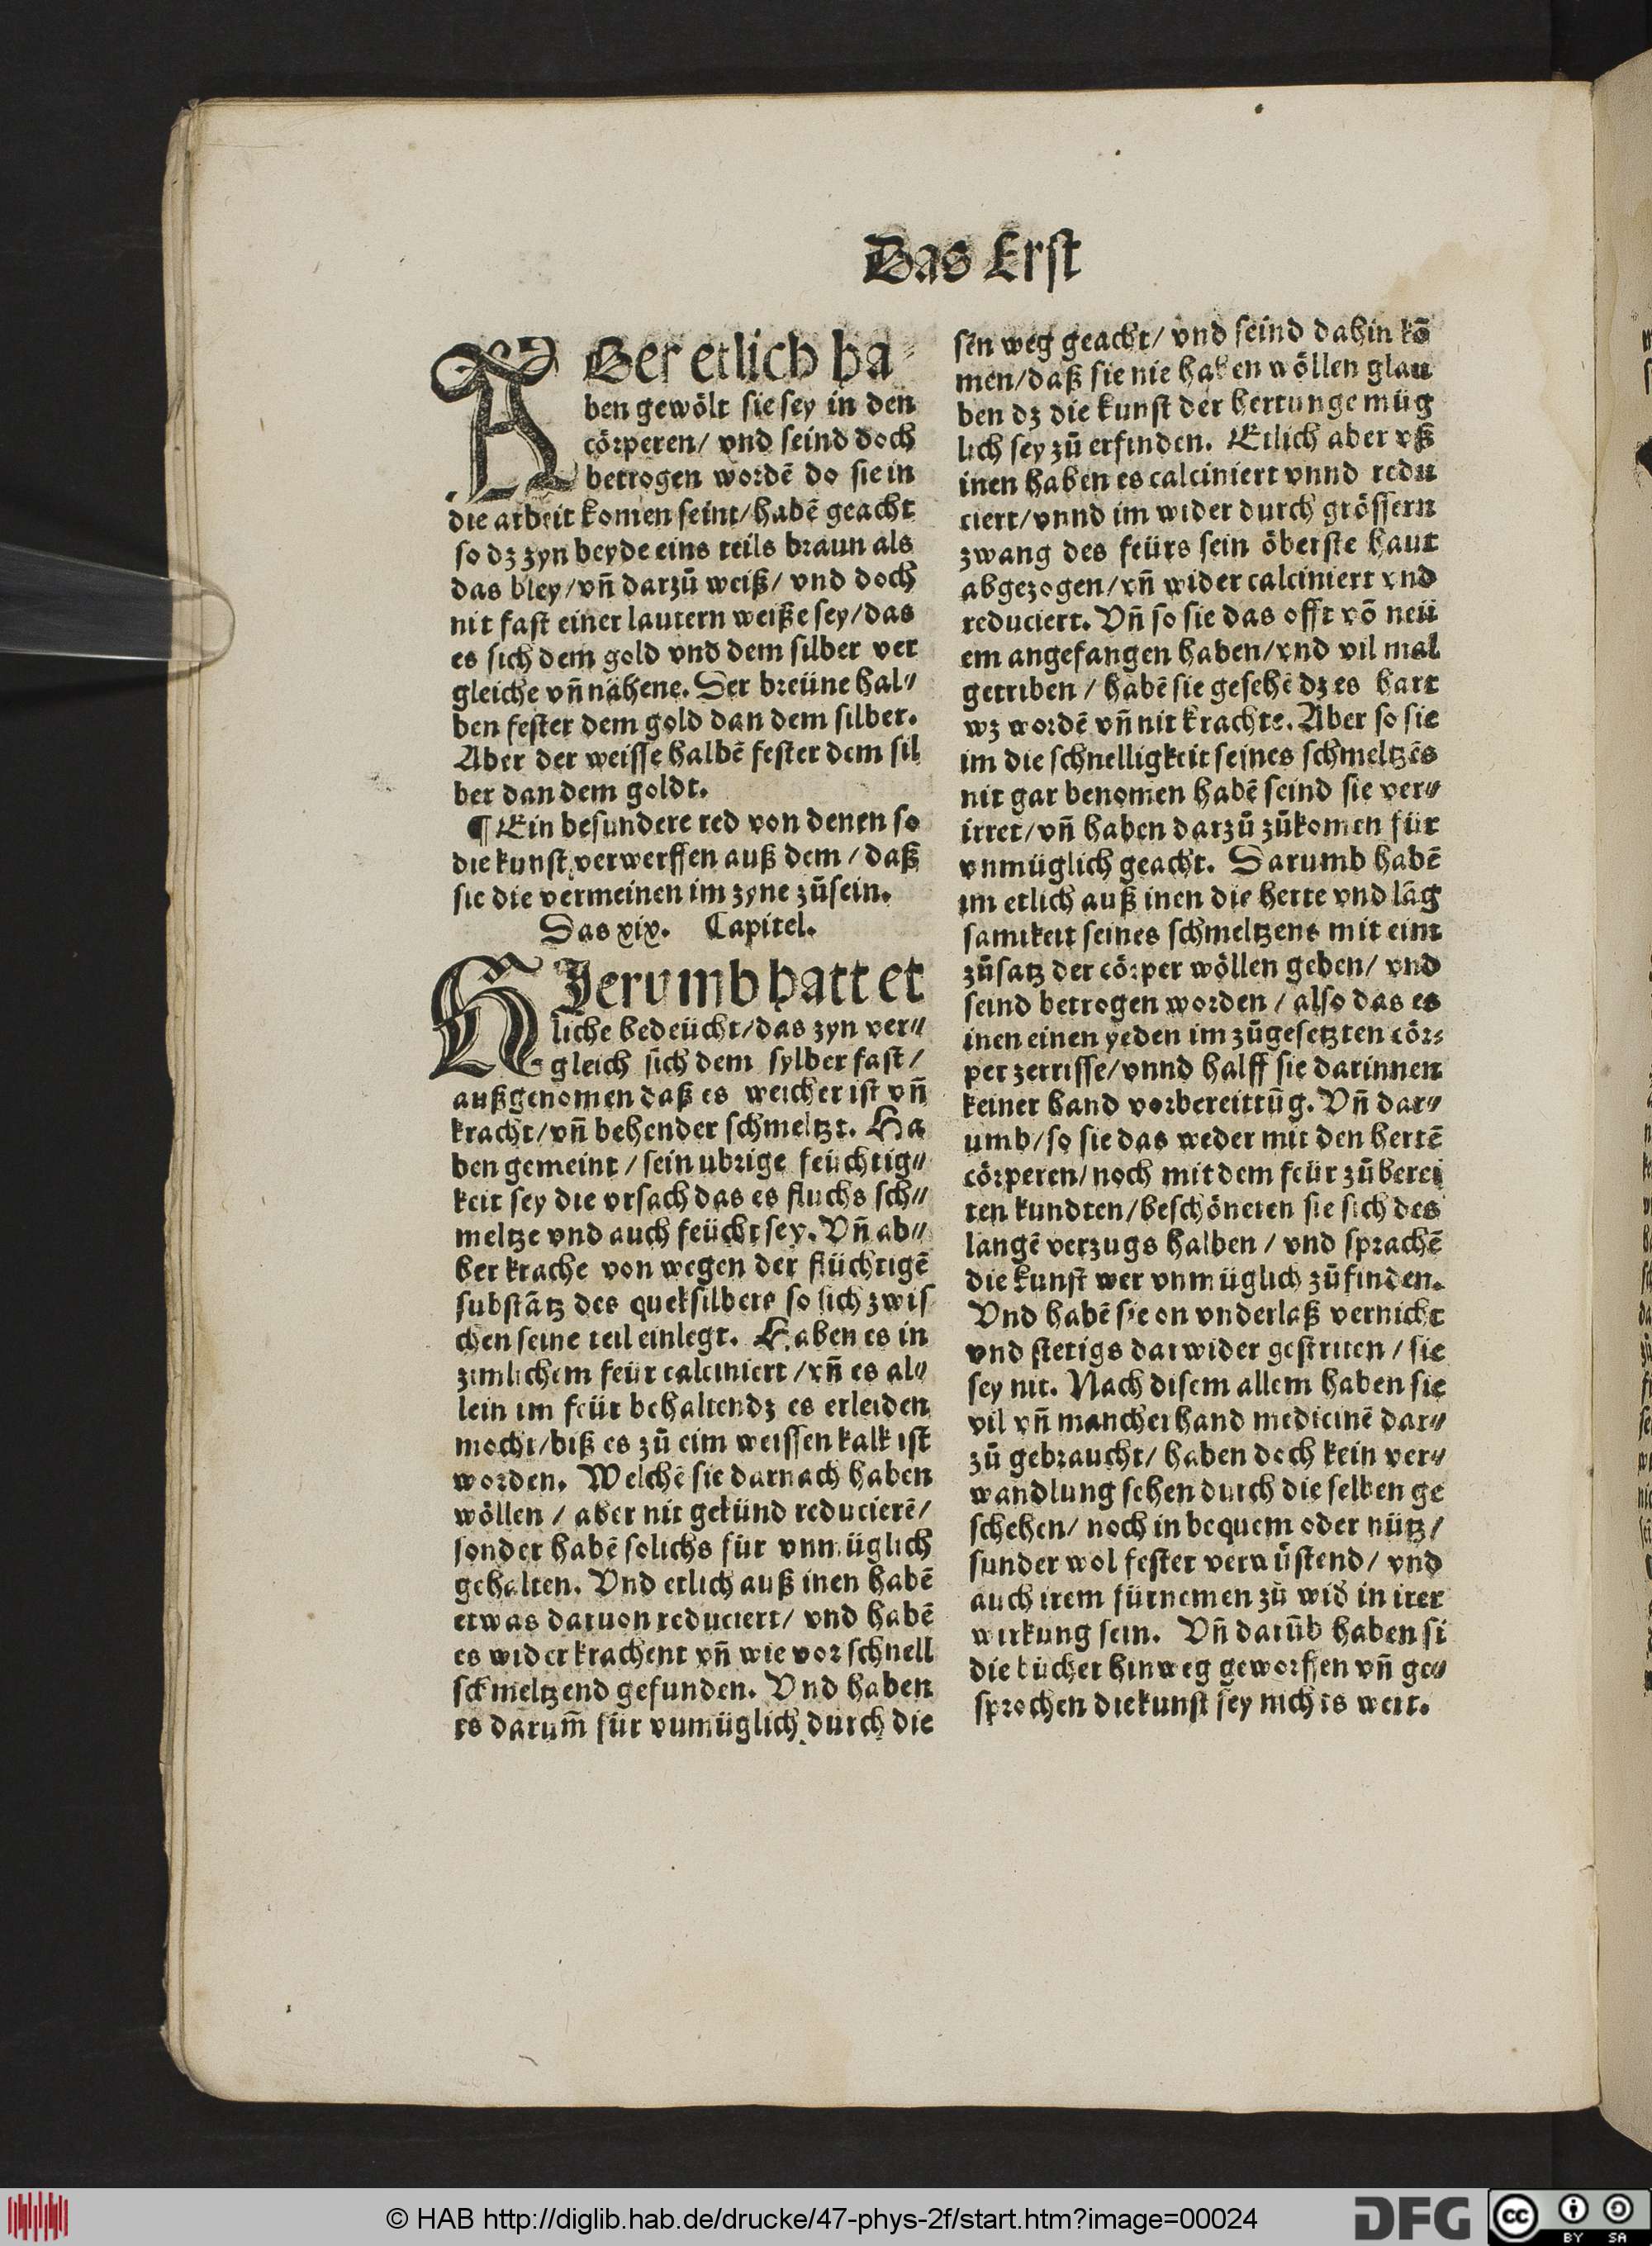 Das Erst
ABer etlich ha⸗
ben gewölt sie sey in den
cörperen/ vnd seind doch
betrogen wordē do sie in
die arbeit komen seint/habē geacht
so dz zyn beyde eins teils braun als
das bley/vñ darzů weiß/ vnd doch
nit fast einer lautern weiße sey/das
es sich dem gold vnd dem silber ver
gleiche vñ nähene. Der breüne hal⸗
ben fester dem gold dan dem silber.
Aber der weisse halbē fester dem sil
ber dan dem goldt.
¶ Ein besundere red von denen so
die kunst verwerffen auß dem/ daß
sie die vermeinen im zyne zůsein.
Das xix. Capitel.
HJerumb hatt et
liche bedeücht/das zyn ver⸗
gleich sich dem sylber fast/
außgenomen daß es weicher ist vñ
kracht/vñ behender schmeltzt. Ha
ben gemeint/ sein ubrige feüchtig⸗
keit sey die vrsach das es fluchs sch⸗
meltze vnd auch feücht sey. Vñ ab⸗
ber krache von wegen der flüchtigē
substātz des queksilbers so sich zwis
chen seine teil einlegt. Haben es in
zimlichem feür calciniert/vñ es al⸗
lein im feür behalten dz es erleiden
mocht/biß es zů eim weissen kalk ist
worden. Welchē sie darnach haben
wöllen/ aber nit gekünd reducierē/
sonder habē solichs für vnmüglich
gehalten. Vnd etlich auß inen habē
etwas daruon reduciert/ vnd habē
es wider krachent vñ wie vor schnell
schmeltzend gefunden. Vnd haben
es darum̄ für vumüglich durch die
sen weg geacht/ vnd seind dahin kō
men/daß sie nie haben wöllen glau
ben dz die kunst der hertunge müg
lich sey zů erfinden. Etlich aber vß
inen haben es calciniert vnnd redu
ciert/vnnd im wider durch grössern
zwang des feürs sein öberste haut
abgezogen/vñ wider calciniert vnd
reduciert. Vñ so sie das offt vō neü
em angefangen haben/vnd vil mal
getriben/ habē sie gesehē dz es hart
wz wordē vñ nit krachte. Aber so sie
im die schnelligkeit seines schmeltzēs
nit gar benomen habē seind sie ver⸗
irret/vñ haben darzů zůkomen für
vnmüglich geacht. Darumb habē
im etlich auß inen die herte vnd lāg
samikeit seines schmeltzens mit eim
zůsatz der cörper wöllen geben/ vnd
seind betrogen worden/ also das es
inen einen yeden im zůgesetzten cör⸗
per zerrisse/vnnd halff sie darinnen
keiner hand vorbereittūg. Vñ dar⸗
umb/so sie das weder mit den hertē
cörperen/noch mit dem feür zů berei
ten kundten/beschöneten sie sich des
langē verzugs halben/ vnd sprachē
die kunst wer vnmüglich zů finden.
Vnd habē sie on vnderlaß vernicht
vnd stetigs darwider gestriten/ sie
sey nit. Nach disem allem haben sie
vil vñ mancherhand medicinē dar⸗
zů gebraucht/ haben doch kein ver⸗
wandlung sehen durch die selben ge
schehen/ noch in bequem oder nütz/
sunder wol fester verwůstend/ vnd
auch irem fürnemen zů wid in irer
wirkung sein. Vñ darūb haben si
die bücher hinweg geworffen vñ ge⸗
sprochen die kunst sey nichts wert.
© HAB http://diglib.hab.de/drucke/47-phys-2f/start.htm?image=00024
DFG
cc
BY SA